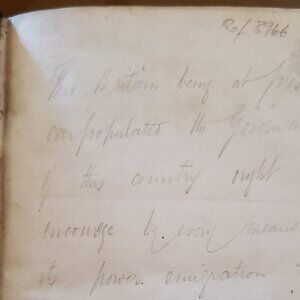 Ref 3966
That Britain being at pres
overpopulated the Governm
of this country ought
encourage by every means
its power emigration